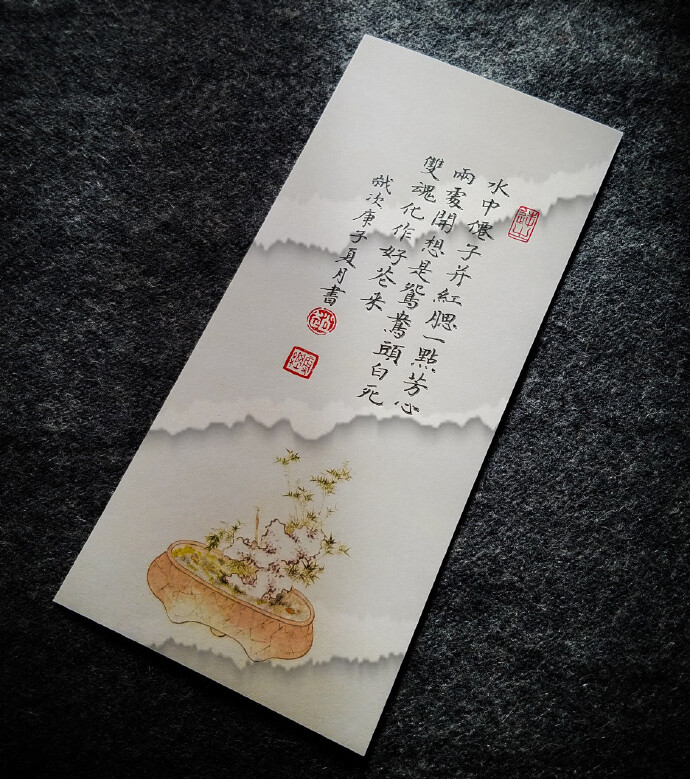 水中僊子并紅腮一點芳心
兩處開想是鴛鴦頭白死
雙魂化作好花来
歲次庚子夏月書